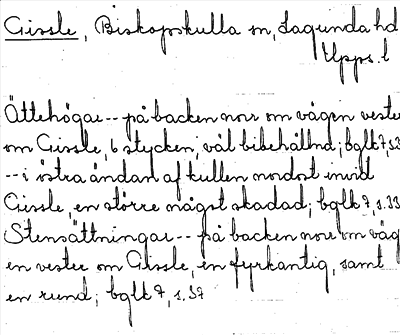 Gissle, Biskopskulla sn, Lagunda hd
Upps. l
Ättehögar -- på backen norr om vägen vester
om Gissle, 6 stycken, väl bibehållna; bglk 7, s.33
-- i östra ändan af kullen nordost invid
Gissle, en större något skadad; bglk 7, s.33
Stensättningar -- på backen norr om väg
en vester om Gissle, en fyrkantig, samt
en rund; bglk 7, s.37